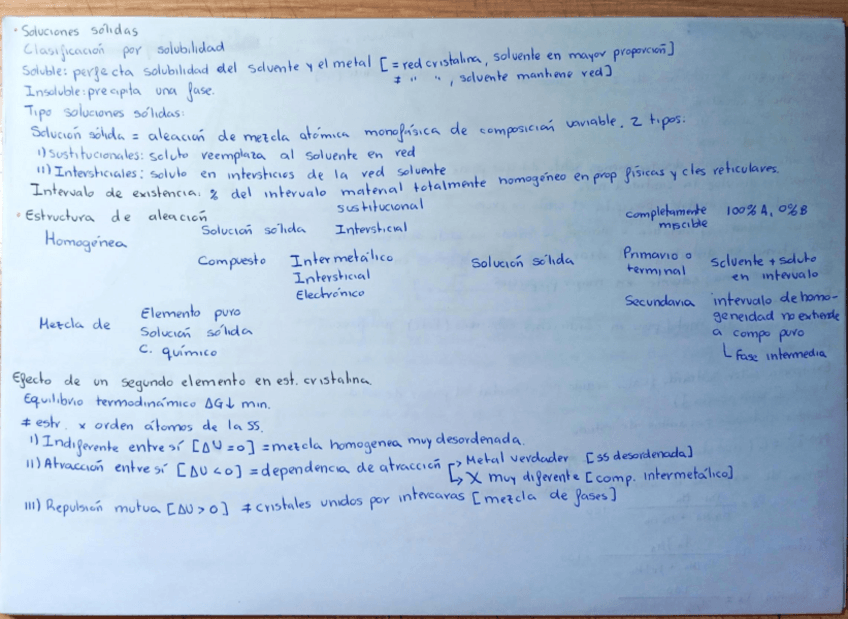 • Soluciones sólidas
Clasificación por solubilidad
Soluble: perfecta solubilidad del solvente y el metal [= red cristalina, solvente en mayor proporción]
≠ " " , solvente mantiene red]
Insoluble: precipita una fase.
Tipo soluciones sólidas:
Solución sólida = aleación de mezcla atómica monofásica de composición variable. 2 tipos:
i) Sustitucionales: soluto reemplaza al solvente en red
ii) Intersticiales: soluto en intersticios de la red solvente
Intervalo de existencia: % del intervalo material totalmente homogéneo en prop físicas y ctes reticulares.
• Estructura de aleación
Homogénea
Solución sólida
sustitucional
Intersticial
Compuesto
Intermetálico
Intersticial
Electrónico
Mezcla de
Elemento puro
Solución sólida
C. químico
Solución sólida
completamente miscible
100% A, 0% B
Primario o terminal
solvente + soluto
en intervalo
Secundaria
intervalo de homo-
geneidad no extiende
a compo puro
↳ fase intermedia
Efecto de un segundo elemento en est. cristalina.
Equilibrio termodinámico ΔG↓ min.
≠ estr. x orden átomos de la SS.
i) Indiferente entre sí [ΔU = 0] = mezcla homogenea muy desordenada.
ii) Atracción entre sí [ΔU < 0] = dependencia de atracción
→ Metal verdader [ss desordenada]
↳ X muy diferente [comp. intermetálico]
iii) Repulsión mutua [ΔU > 0] ≠ cristales unidos por intercaras [mezcla de fases]